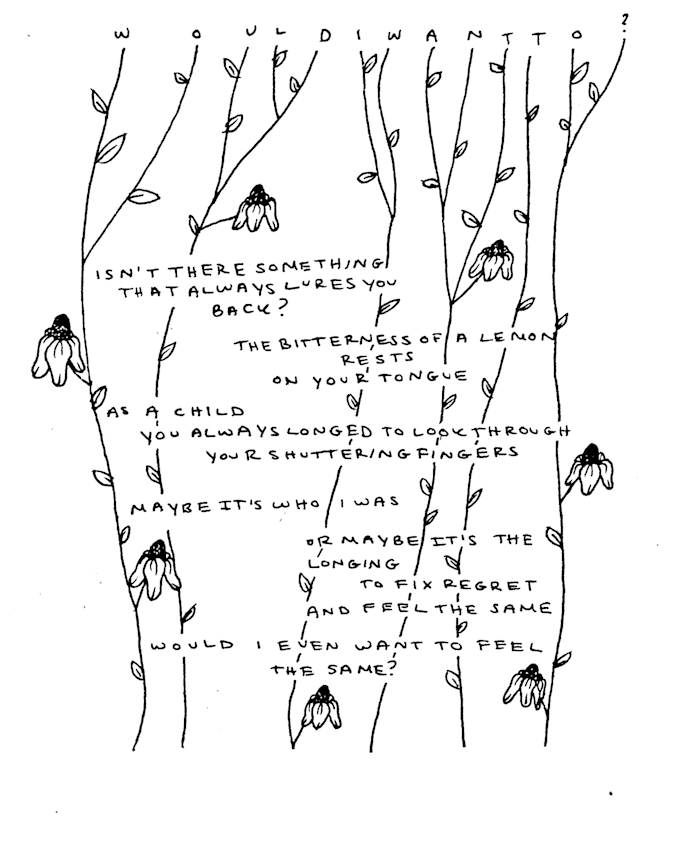 WOULD I WANT TO?
ISN'T THERE SOMETHING
THAT ALWAYS LURES YOU
BACK?
THE BITTERNESS OF A LEMON
RESTS
ON YOUR TONGUE
AS A CHILD
YOU ALWAYS LONGED TO LOOK THROUGH
YOUR SHUTTERING FINGERS
MAYBE IT'S WHO I WAS
OR MAYBE IT'S THE
LONGING
TO FIX REGRET
AND FEEL THE SAME
WOULD I EVEN WANT TO FEEL
THE SAME?